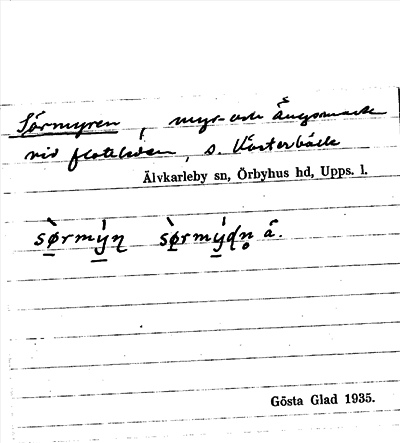 Sörmyren, myr- och ängsmark
vid flottleden, s. Västerbäck
Älvkarleby sn, Örbyhus hd, Upps. l.
sø̀rmýn sø̀rmýdn å.
Gösta Glad 1935.